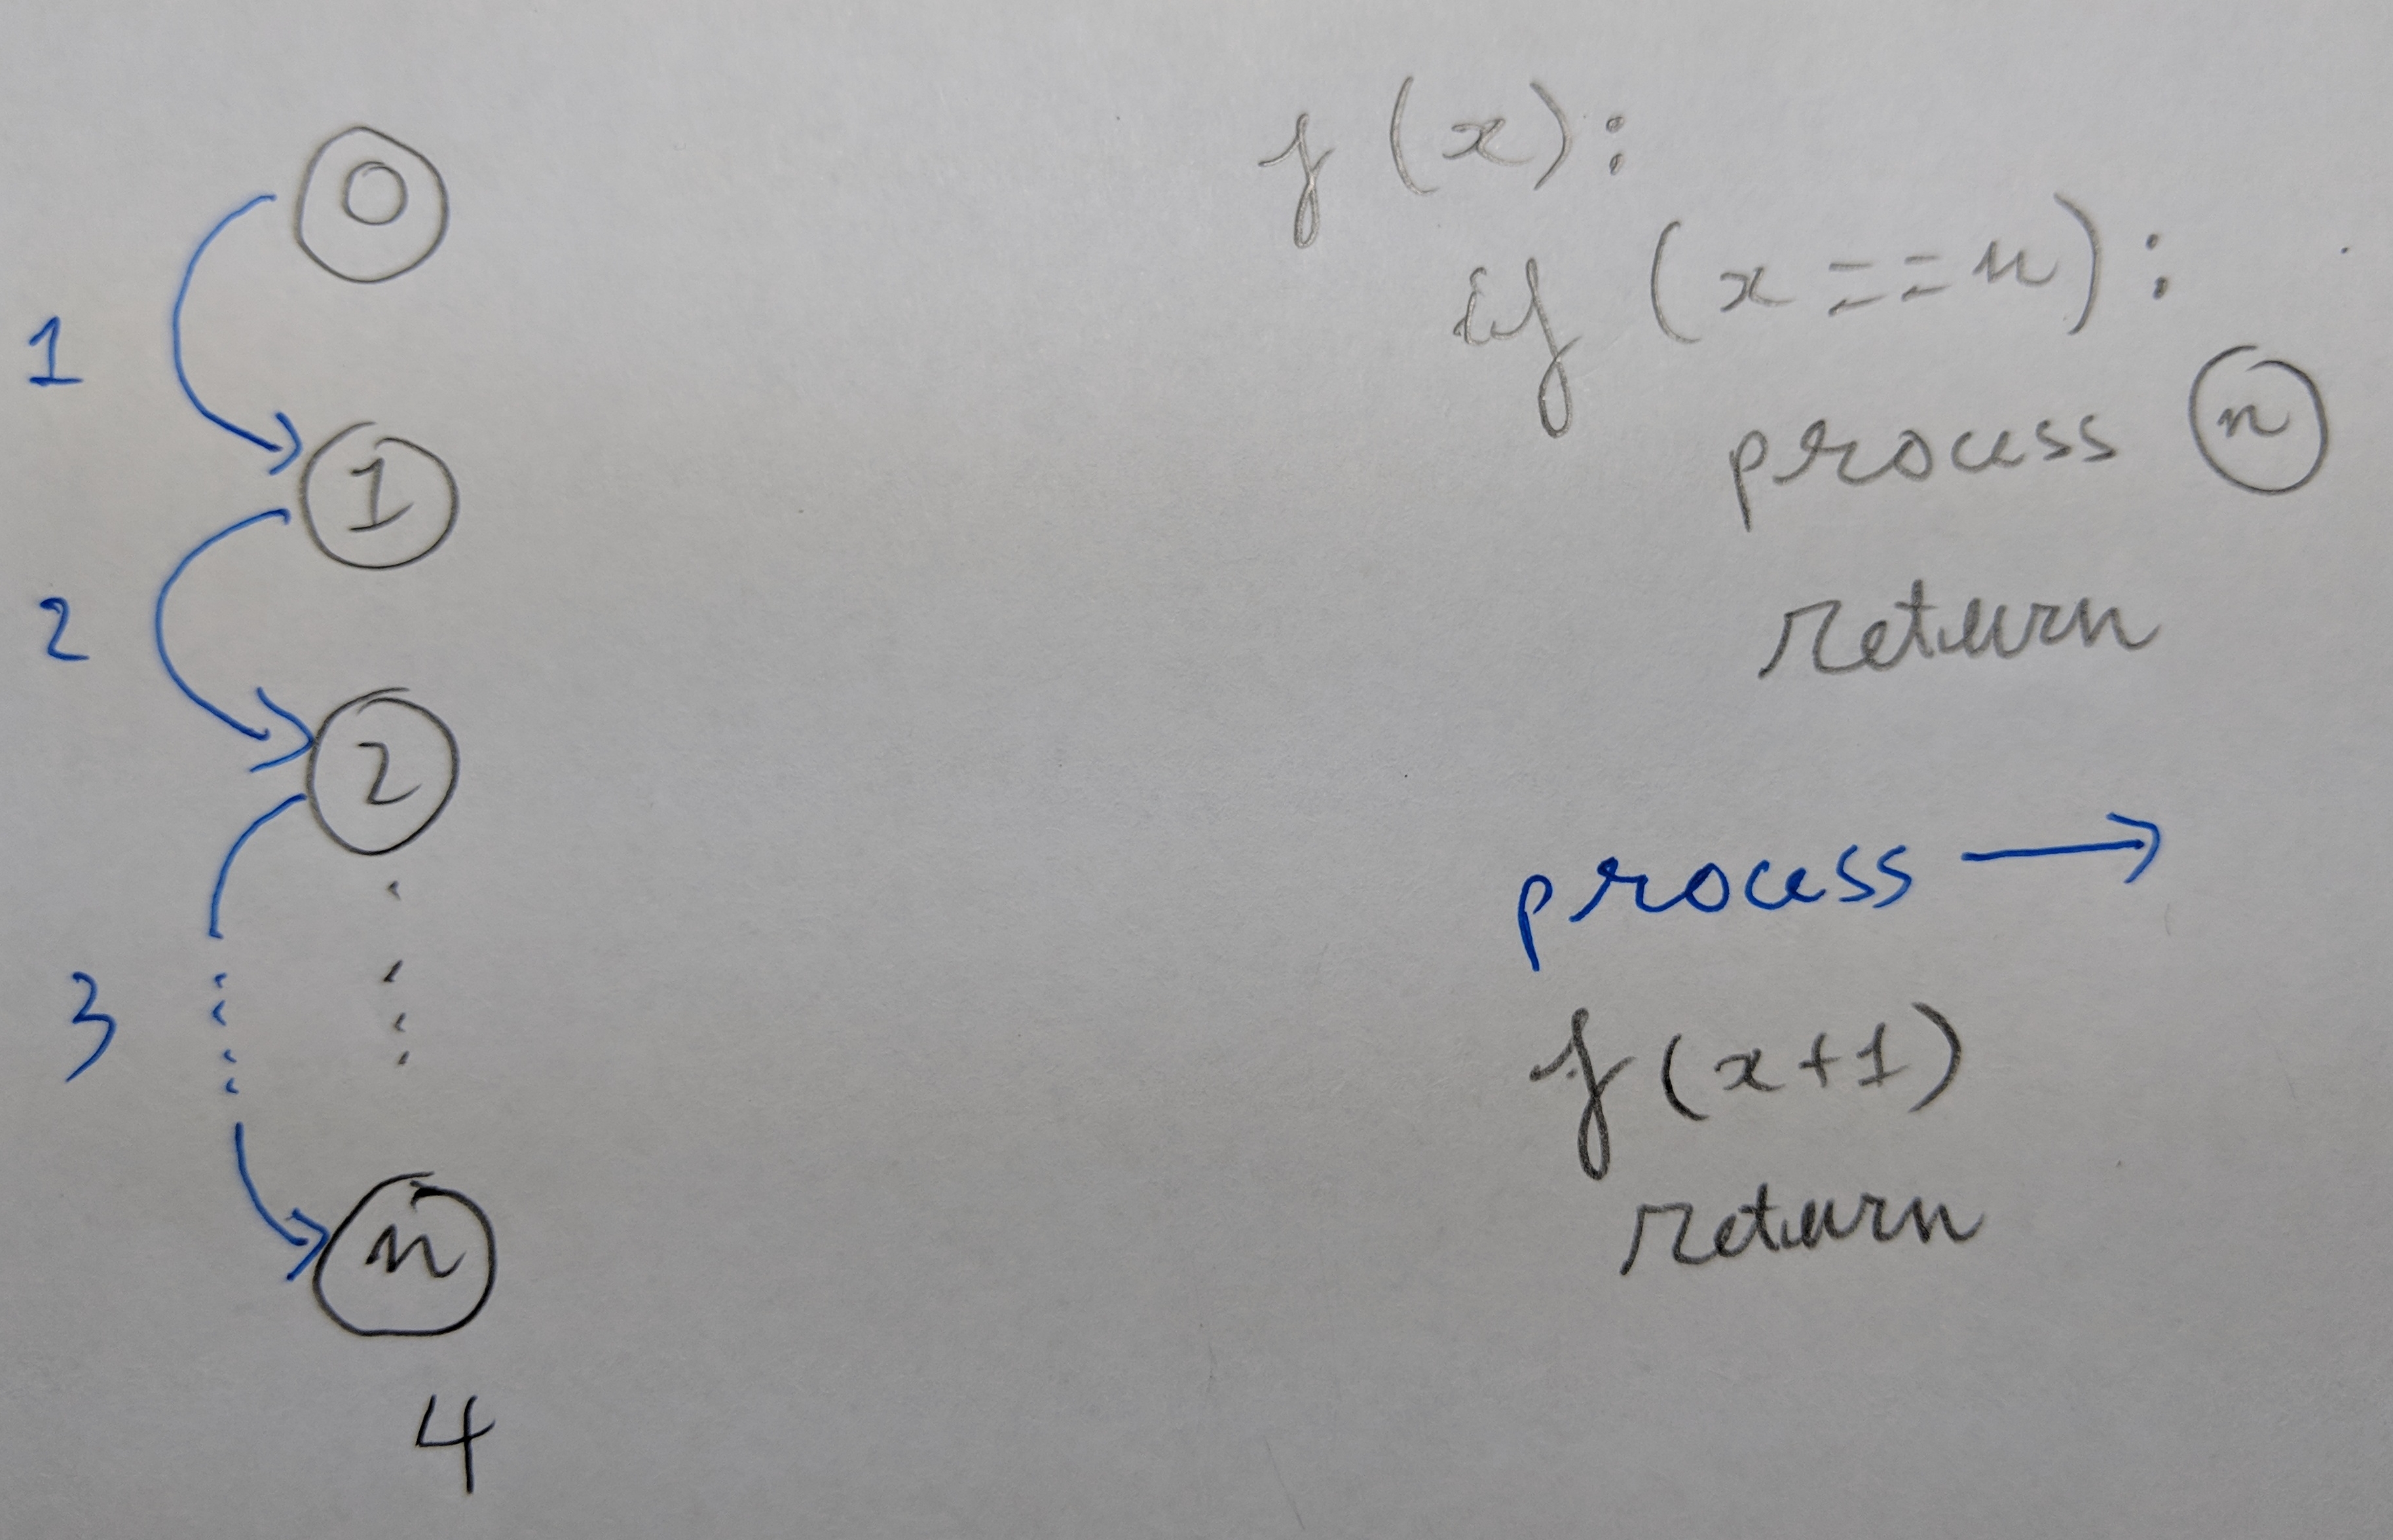 0
1
1
2
2
3
n
4
f(x):
if (x==n):
process n
return
process →
f(x+1)
return